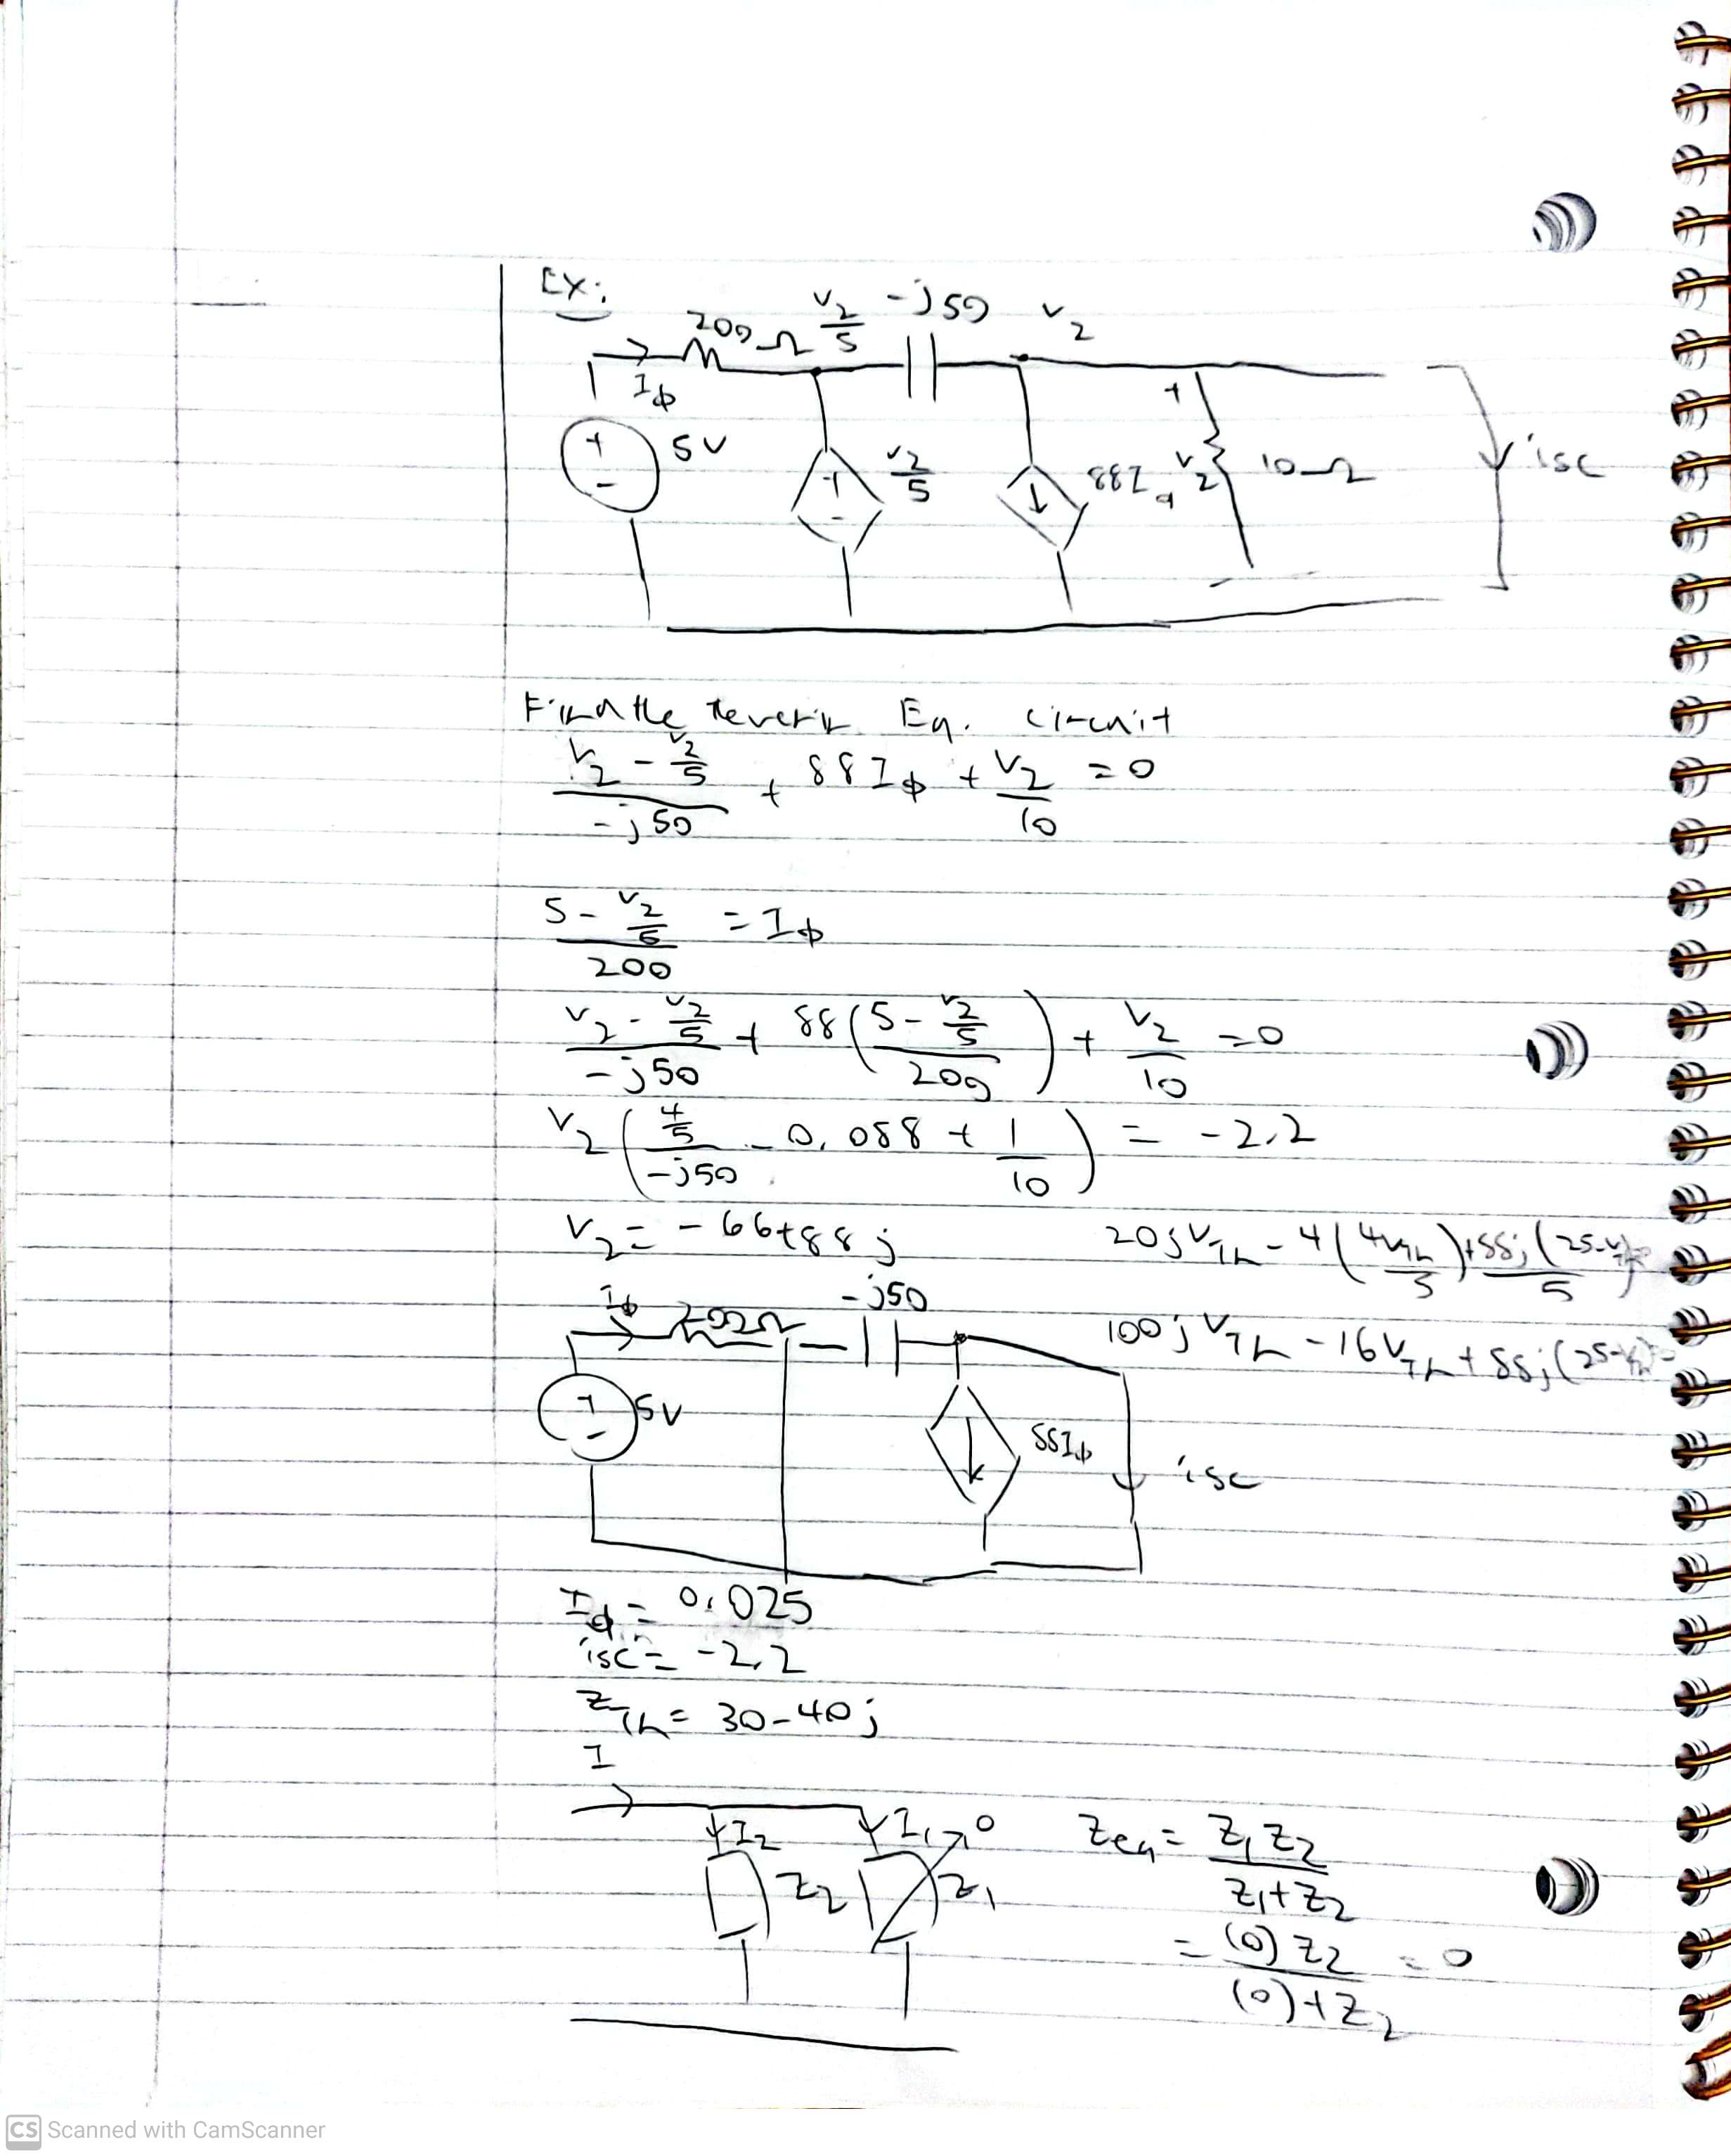 Ex:
200Ω V2/5 -j50 V2
Iϕ
+ - 5V + - V2/5 88Iϕ + V2 - 10Ω isc
Find the Thevenin Eq. circuit
(V2 - V2/5)/(-j50) + 88Iϕ + V2/10 = 0
(5 - V2/5)/200 = Iϕ
(V2 - V2/5)/(-j50) + 88((5 - V2/5)/200) + V2/10 = 0
V2((4/5)/(-j50) - 0.088 + 1/10) = -2.2
V2 = -66+88j
20jVTh - 4(4VTh/5) + 88j(25-V
Iϕ 200Ω -j50
100jVTh - 16VTh + 88j(25-VTh)=
+ - 5V 88Iϕ isc
Iϕ = 0.025
isc = -2.2
ZTh = 30-40j
I
I2 I1 0
Z2 Z1
Zeq = Z1Z2/(Z1+Z2)
= (0)Z2/((0)+Z2) = 0
CS Scanned with CamScanner